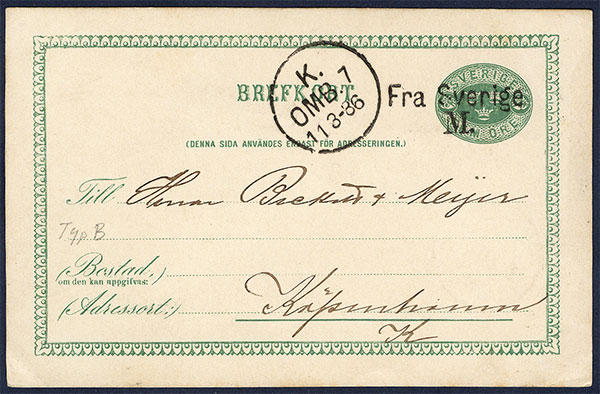 K.
OMB. 7
11 3-86
BREFKORT
Fra Sverige
M.
SVERIGE
FEM ÖRE
(DENNA SIDA ANVÄNDES ENDAST FÖR ADRESSERINGEN.)
Till Herrar Beckett & Meijer
Typ B
(Bostad,)
om den kan uppgifvas:
(Adressort:)
Köpenhamn
K